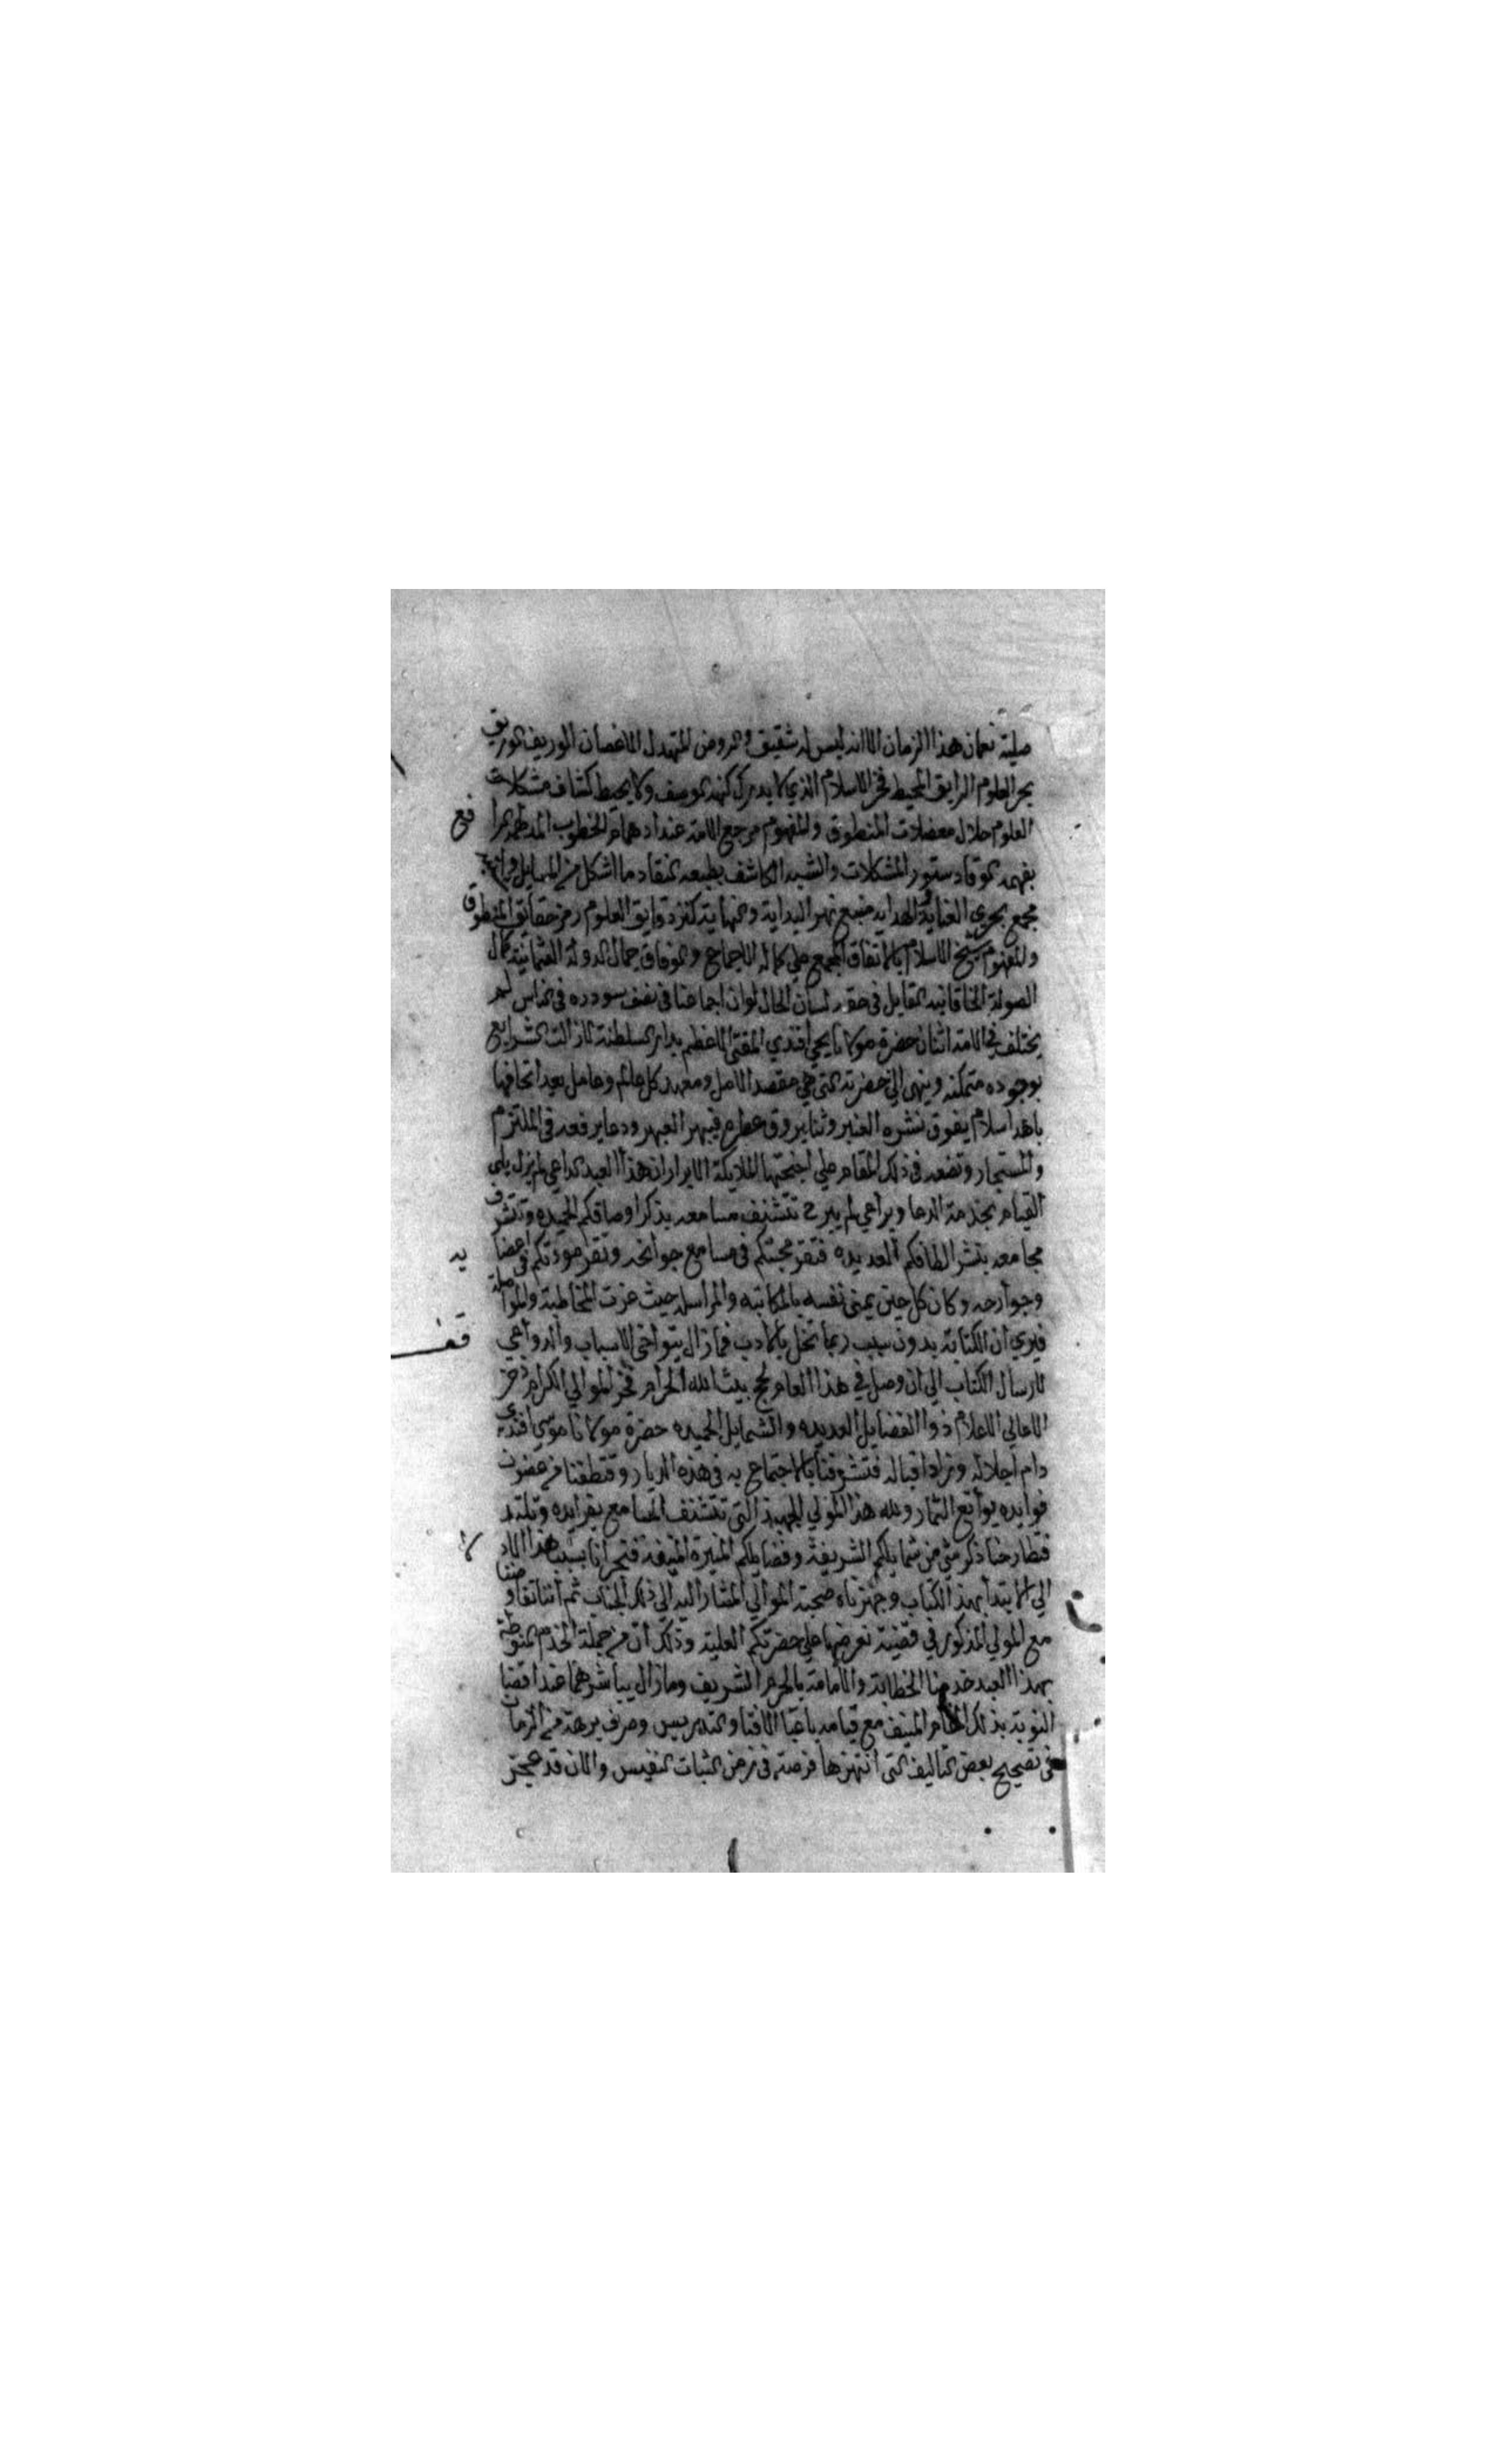 صلية نعمان هذا الزمان الا انه ليس له شقيق والروض المتهدل الاغصان الوريف الوريق
بحر العلوم الرايق المحيط فخر الاسلام الذي لا يدرك كنهه الوصف ولا يحيط كشاف مشكلات
العلوم حلال معضلات المنطوق والمفهوم مرجع الامة عند ادهمام الخطوب المدلهمه الرا فع
بفهمه الوقاد ستور المشكلات والشبه الكاشف بطبعه النقاد ما اشكل من المسايل
مجمع بحري العناية والهدايه منبع نهر البداية والنهاية كنز دقايق العلوم رمز حقايق المنطوق
والمفهوم شيخ الاسلام بالاتفاق المجمع على كماله الاجماع والوفاق جمال الدولة العثمانية كمال
الصولة الخاقانيه القايل في حقه لسان الحال لو ان اجماعنا في نفسه سودده في الناس لم
يختلف في الامة اثنان حضرة مولانا يحيى افندي المفتي الاعظم بدار السلطنة لا زالت الشرايع
بوجوده متمكنه وينهى الي حضرته التي هي مقصد الامل ومعهد كل عالم وعامل بعد اتحافها
باهدا سلام يفوق نشره العنبر وثنا يروق عطره فيبهر العبهر ودعا يرفعه في الملتزم
والمستجار وتضعه في ذلك المقام على اجنحتها الملايكة الابرار ان هذا العبد الداعي لم يزل يلي
القيام بخدمة الدعا ويراعي لم يبرح تتشنف مسامعه بذكر اوصافكم الحميده وتتشرف
مجامعه بنشر الطافكم العديده فتقر محبتكم في مسامع جوانحه وتقر مودتكم في اعضا يه
وجوارحه وكان كل حين يمني نفسه بالمكاتبه والمراسله حيث عزت المخاطبة والمواصلة
فيري ان الكتابة بدون سبب ربما تخل بالادب فما زال يتواخى الاسباب والدواعي
لارسال الكتاب الي ان وصل في هذا العام لحج بيت الله الحرام فخر الموالي الكرام ذخر
الاعالي الاعلام ذوا الفضايل العديده والشمايل الحميده حضرة مولانا موسي افندي
دام اجلاله وزاد اقباله فتشرفنا بالاجتماع به في هذه الديار وقتطفنا من غصون
فوايده يوانع الثمار ولله هذا المولي الجهبذ التي تتشنف المسامع بفرايده وتلتذ
فتطارحنا ذكر شي من شمايلكم الشريفة وفضايلكم المنيرة المنيفه فتجرانا بسبب هذا
الي الابتدا بهذ الكتاب وجهزناه صحبة الموالي المشار اليه الي ذلك الجناب ثم اننا تفاوضنا
مع المولي المذكور في قضية نعرضها علي حضرتكم العلية وذلك ان من جملة الخدم المنوطة
بهذا العبد خدمتا الخطابة والامامة بالحرم الشريف وما زال يباشرهما عند اقتضا
النوبة بذلك المقام المنيف مع قيامه باعبا الافتا والتدريس وصرف برهة من الزمان
في تصحيح بعض التاليف التي انتهزها فرصة في زمن الثبات النفيس والان قد عجز